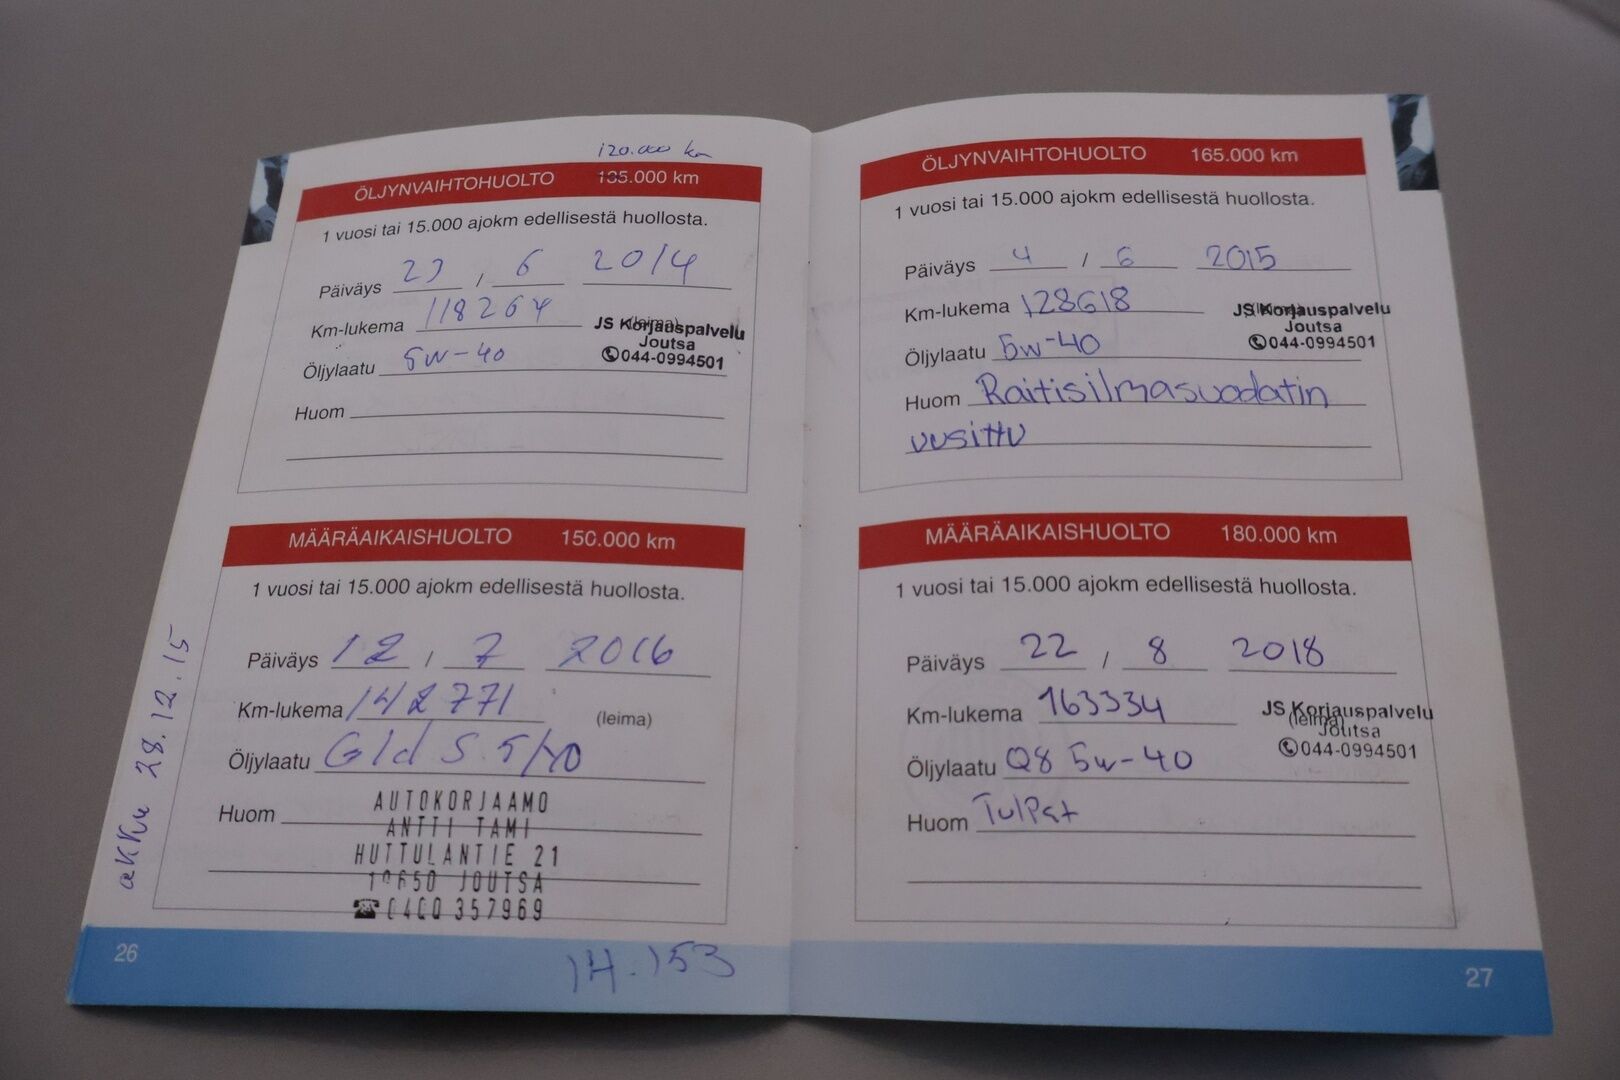 120.000 km
ÖLJYNVAIHTOHUOLTO 135.000 km
1 vuosi tai 15.000 ajokm edellisestä huollosta.
Päiväys 23 / 6 2014
Km-lukema 118264 (leima)
JS Korjauspalvelu
Joutsa
044-0994501
Öljylaatu 5w-40
Huom
MÄÄRÄAIKAISHUOLTO 150.000 km
1 vuosi tai 15.000 ajokm edellisestä huollosta.
Päiväys 12 / 7 2016
Km-lukema 142771 (leima)
Öljylaatu Gld S. 5/40
Huom
AUTOKORJAAMO
ANTTI TAMI
HUTTULANTIE 21
19650 JOUTSA
0400 357969
akku 28.12.15
26
14.153
ÖLJYNVAIHTOHUOLTO 165.000 km
1 vuosi tai 15.000 ajokm edellisestä huollosta.
Päiväys 4 / 6 2015
Km-lukema 128618 (leima)
JS Korjauspalvelu
Joutsa
044-0994501
Öljylaatu 5w-40
Huom Raitisilmasuodatin
uusittu
MÄÄRÄAIKAISHUOLTO 180.000 km
1 vuosi tai 15.000 ajokm edellisestä huollosta.
Päiväys 22 / 8 2018
Km-lukema 163334 (leima)
JS Korjauspalvelu
Joutsa
044-0994501
Öljylaatu Q8 5w-40
Huom Tulpat
27